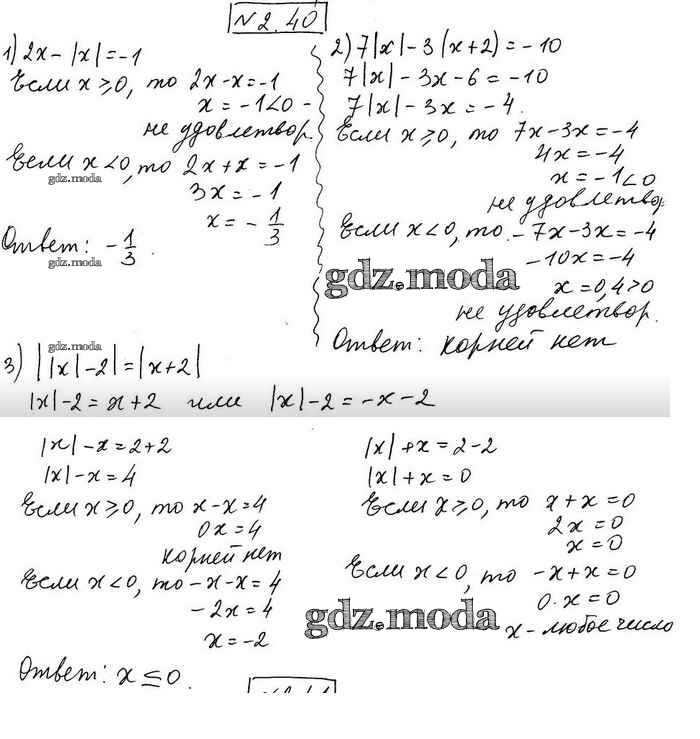 №2.40
1) 2x - |x| = -1
Если x ⩾ 0, то 2x - x = -1
x = -1 < 0 -
не удовлетвор.
Если x < 0, то 2x + x = -1
gdz.moda
3x = -1
x = - 1/3
Ответ: - 1/3.
gdz.moda
2) 7|x| - 3(x+2) = -10
7|x| - 3x - 6 = -10
7|x| - 3x = -4.
Если x ⩾ 0, то 7x - 3x = -4
4x = -4
x = -1 < 0
не удовлетвор.
Если x < 0, то - 7x - 3x = -4
-10x = -4
gdz.moda
x = 0,4 > 0
не удовлетвор.
Ответ: корней нет
gdz.moda
3) ||x| - 2| = |x + 2|
|x| - 2 = x + 2 или |x| - 2 = -x - 2
|x| - x = 2 + 2
|x| - x = 4
Если x ⩾ 0, то x - x = 4
0x = 4
корней нет
Если x < 0, то - x - x = 4
- 2x = 4
x = -2
|x| + x = 2 - 2
|x| + x = 0
Если x ⩾ 0, то x + x = 0
2x = 0
x = 0
Если x < 0, то -x + x = 0
0·x = 0
gdz.moda
x - любое число
Ответ: x ≤ 0.